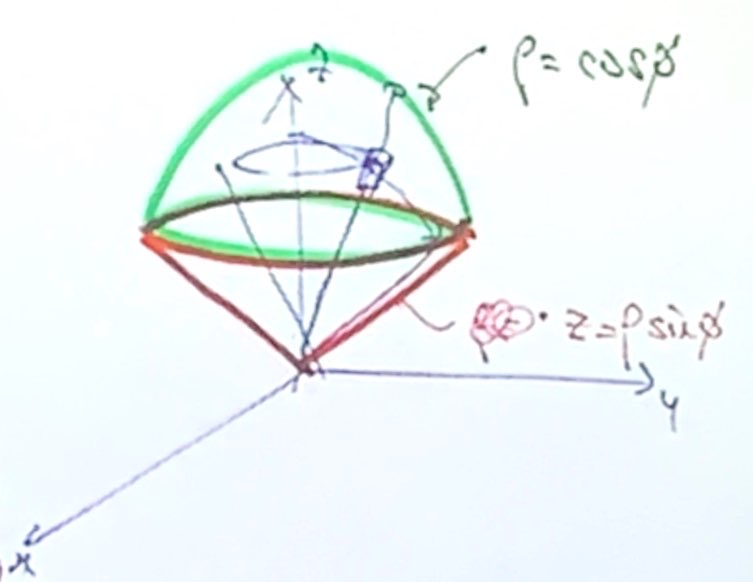 z
ρ = cosφ
z = ρ sinφ
y
x